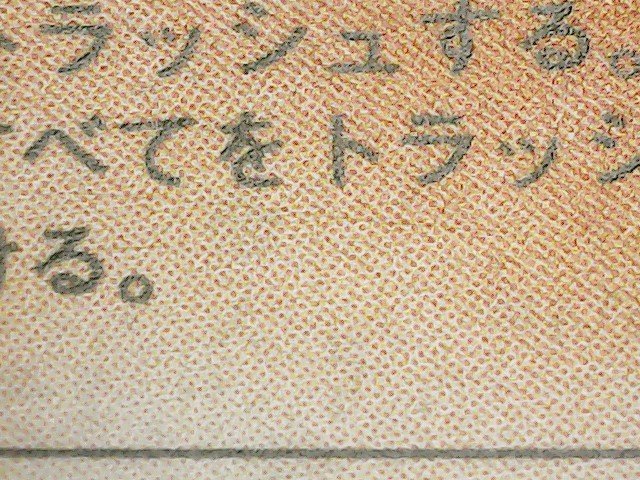 トラッシュする。
すべてをトラッシ
ける。